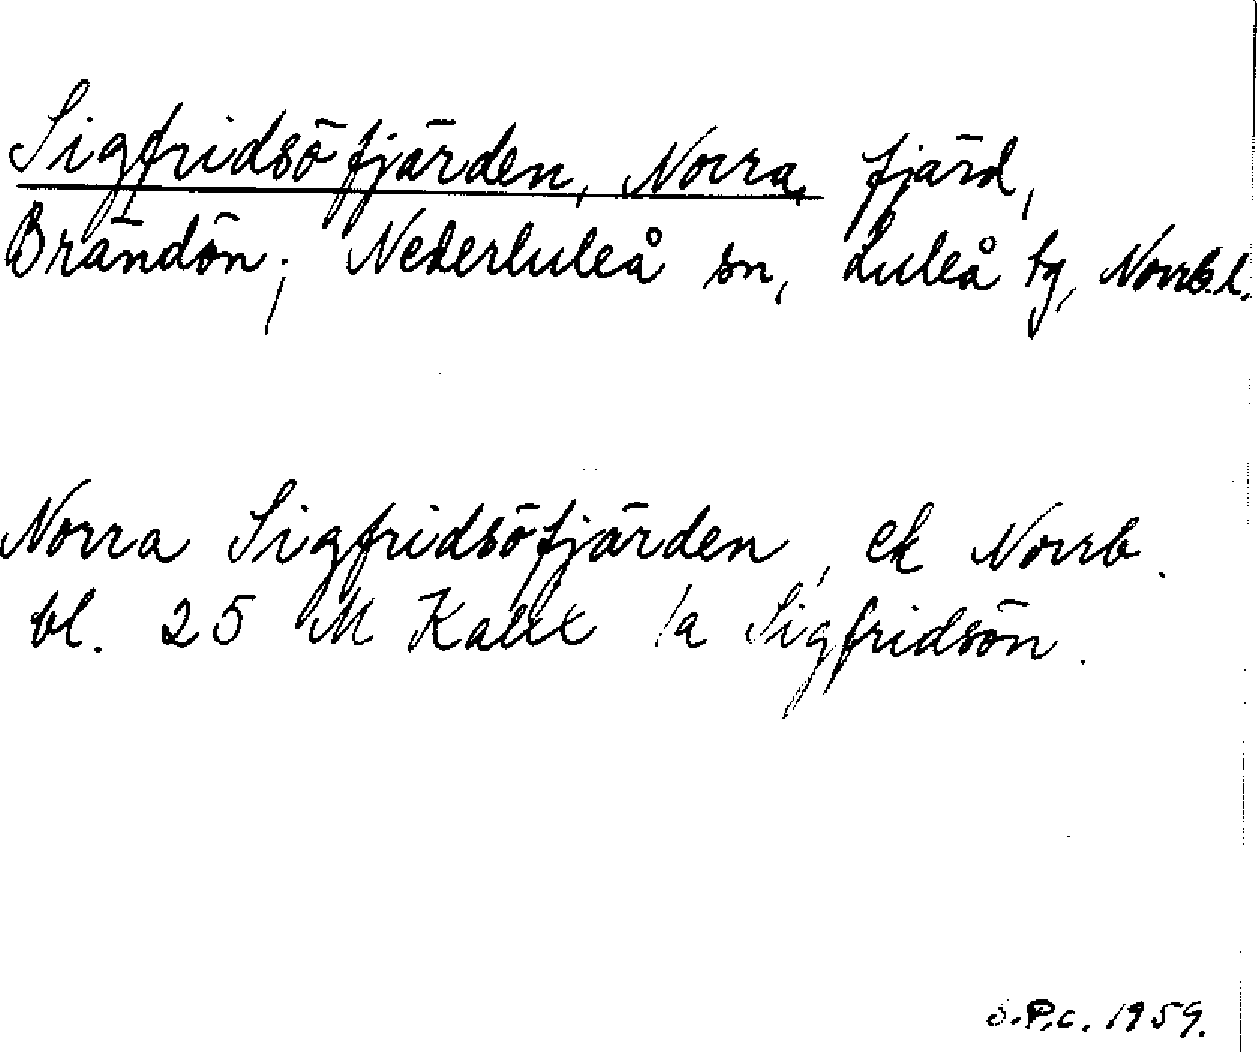 Sigfridsöfjärden, Norra, fjärd,
Brändön; Nederluleå sn, Luleå tg, Norrb.l.
Norra Sigfridsöfjärden, ek Norrb.
bl. 25 M Kalix /a Sigfridsön.
S.P.c. 1959.